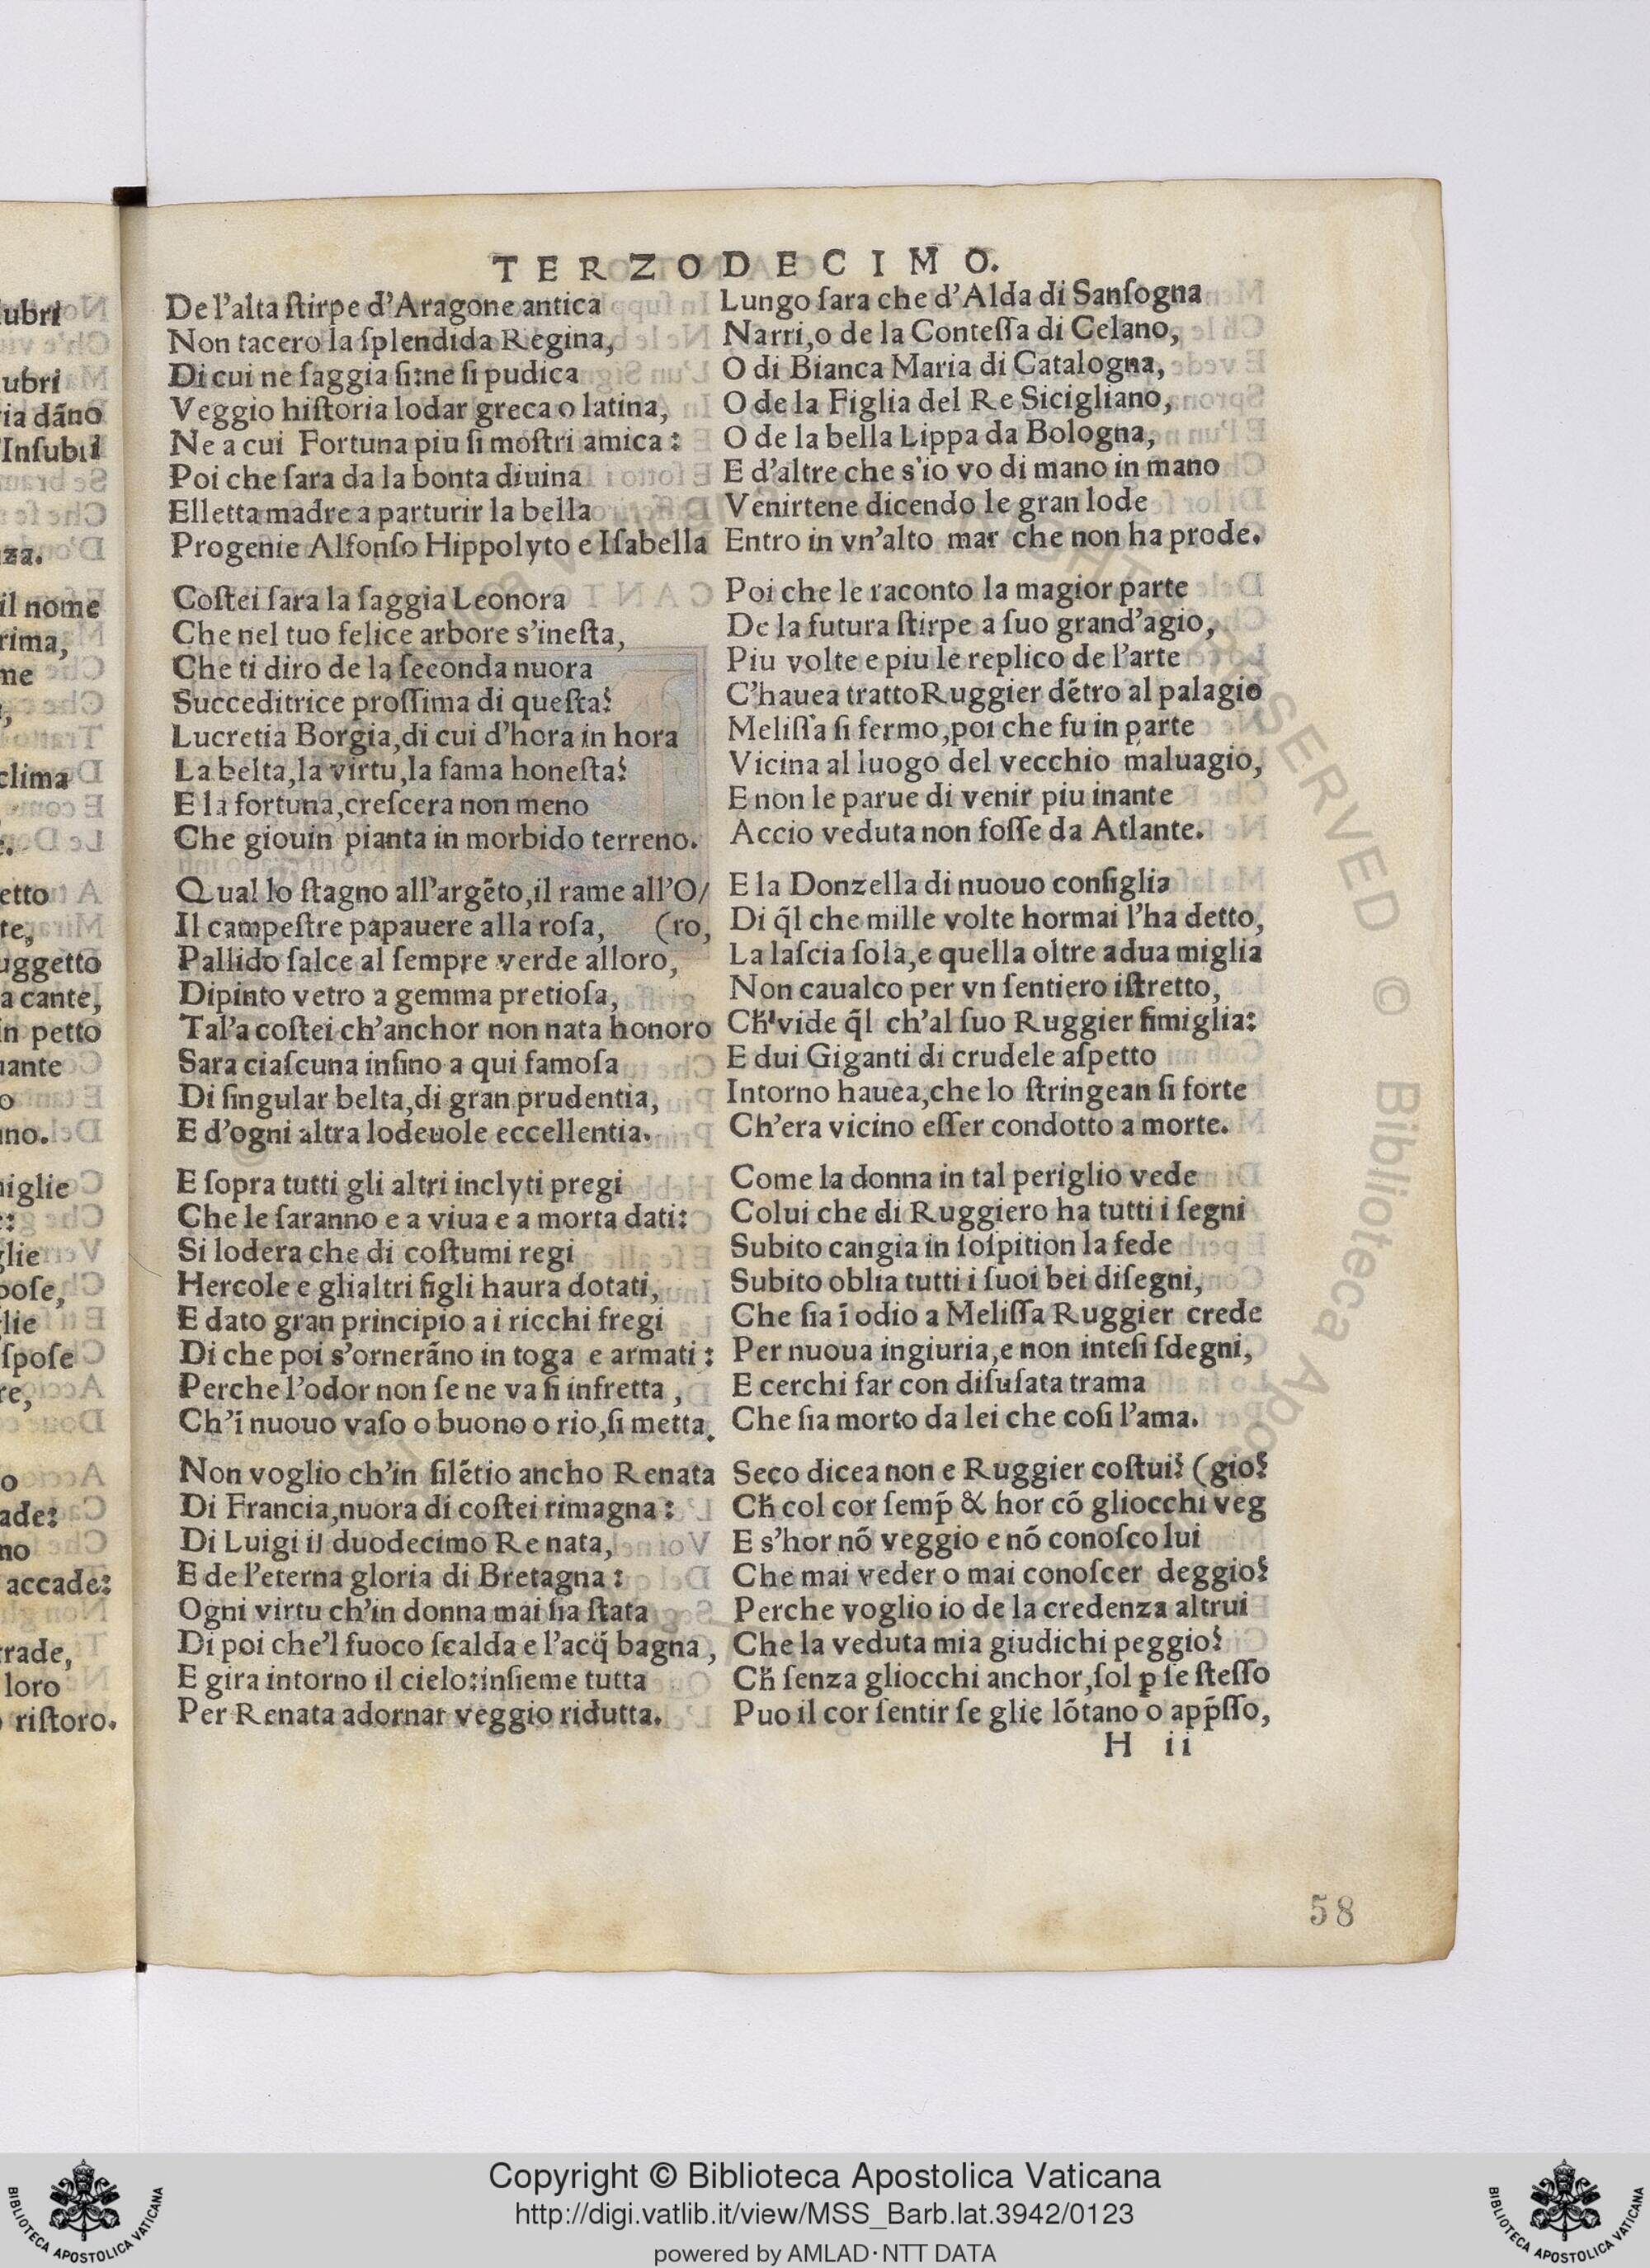 TERZODECIMO.
De l'alta ſtirpe d'Aragone antica
Non tacero la ſplendida Regina,
Di cui ne ſaggia ſi:ne ſi pudica
Veggio hiſtoria lodar greca o latina,
Ne a cui Fortuna piu ſi moſtri amica:
Poi che ſara da la bonta diuina
Elletta madre a parturir la bella
Progenie Alfonſo Hippolyto e Iſabella
Coſtei ſara la ſaggia Leonora
Che nel tuo felice arbore s'ineſta,
Che ti diro de la ſeconda nuora
Succeditrice proſſima di queſta?
Lucretia Borgia,di cui d'hora in hora
La belta,la virtu,la fama honeſta?
E la fortuna,creſcera non meno
Che giouin pianta in morbido terreno.
Qual lo ſtagno all'argēto,il rame all'O/
Il campeſtre papauere alla roſa, (ro,
Pallido ſalce al ſempre verde alloro,
Dipinto vetro a gemma pretioſa,
Tal'a coſtei ch'anchor non nata honoro
Sara ciaſcuna inſino a qui famoſa
Di ſingular belta,di gran prudentia,
E d'ogni altra lodeuole eccellentia.
E ſopra tutti gli altri inclyti pregi
Che le ſaranno e a viua e a morta dati:
Si lodera che di coſtumi regi
Hercole e glialtri figli haura dotati,
E dato gran principio a i ricchi fregi
Di che poi s'ornerāno in toga e armati:
Perche l'odor non ſe ne va ſi infretta,
Ch'ī nuouo vaſo o buono o rio,ſi metta.
Non voglio ch'in ſilētio ancho Renata
Di Francia,nuora di coſtei rimagna:
Di Luigi il duodecimo Renata,
E de l'eterna gloria di Bretagna:
Ogni virtu ch'in donna mai ſia ſtata
Di poi che'l fuoco ſcalda e l'acq̃ bagna,
E gira intorno il cielo:inſieme tutta
Per Renata adornar veggio ridutta.
Lungo ſara che d'Alda di Sanſogna
Narri,o de la Conteſſa di Celano,
O di Bianca Maria di Catalogna,
O de la Figlia del Re Sicigliano,
O de la bella Lippa da Bologna,
E d'altre che s'io vo di mano in mano
Venirtene dicendo le gran lode
Entro in vn'alto mar che non ha prode.
Poi che le raconto la magior parte
De la futura ſtirpe a ſuo grand'agio,
Piu volte e piu le replico de l'arte
C'hauea tratto Ruggier dētro al palagio
Meliſſa ſi fermo,poi che fu in parte
Vicina al luogo del vecchio maluagio,
E non le parue di venir piu inante
Accio veduta non foſſe da Atlante.
E la Donzella di nuouo conſiglia
Di q̃l che mille volte hormai l'ha detto,
La laſcia ſola,e quella oltre adua miglia
Non caualco per vn ſentiero iſtretto,
Ch̃'vide q̃l ch'al ſuo Ruggier ſimiglia:
E dui Giganti di crudele aſpetto
Intorno hauea,che lo ſtringean ſi forte
Ch'era vicino eſſer condotto a morte.
Come la donna in tal periglio vede
Colui che di Ruggiero ha tutti i ſegni
Subito cangia in ſoſpition la fede
Subito oblia tutti i ſuoi bei diſegni,
Che ſia ī odio a Meliſſa Ruggier crede
Per nuoua ingiuria,e non inteſi ſdegni,
E cerchi far con diſuſata trama
Che ſia morto da lei che coſi l'ama.
Seco dicea non e Ruggier coſtui? (gio?
Ch̃ col cor ſemp̃ & hor cō gliocchi veg
E s'hor nō veggio e nō conoſco lui
Che mai veder o mai conoſcer deggio?
Perche voglio io de la credenza altrui
Che la veduta mia giudichi peggio?
Ch̃ ſenza gliocchi anchor,ſol ꝑ ſe ſteſſo
Puo il cor ſentir ſe glie lōtano o app̃ſſo,
H ii
58
Copyright © Biblioteca Apostolica Vaticana
http://digi.vatlib.it/view/MSS_Barb.lat.3942/0123
powered by AMLAD·NTT DATA
BIBLIOTECA APOSTOLICA VATICANA
BIBLIOTECA APOSTOLICA VATICANA